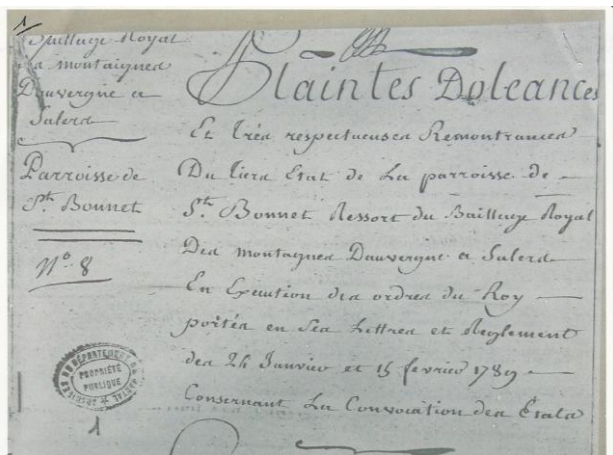 1
Baillage Royal
Da montaignes
Dauvergne a
Salers
Parroisse de
St. Bonnet
N.o 8
Plaintes Doleances
Et très respectueuses Remontrances
Du tiers Etat de La parroisse de
St. Bonnet Ressort du Bailliage Royal
Des montagnes Dauvergne a Salers
En Execution des ordres du Roy
portés en Ses Lettres et Reglement
des 24 Janvier et 15 fevrier 1789
Consernant La Convocation des Etats
ARCHIVES DU DÉPARTEMENT DU CANTAL
PROPRIÉTÉ
PUBLIQUE
1